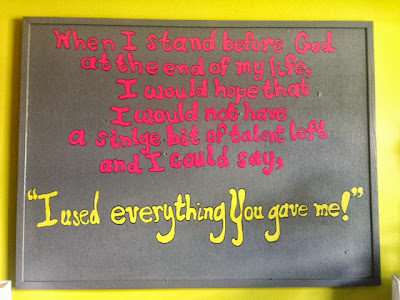 When I stand before God
at the end of my life,
I would hope that
I would not have
a sinlge bit of talent left
and I could say,
"I used everything You gave me!"